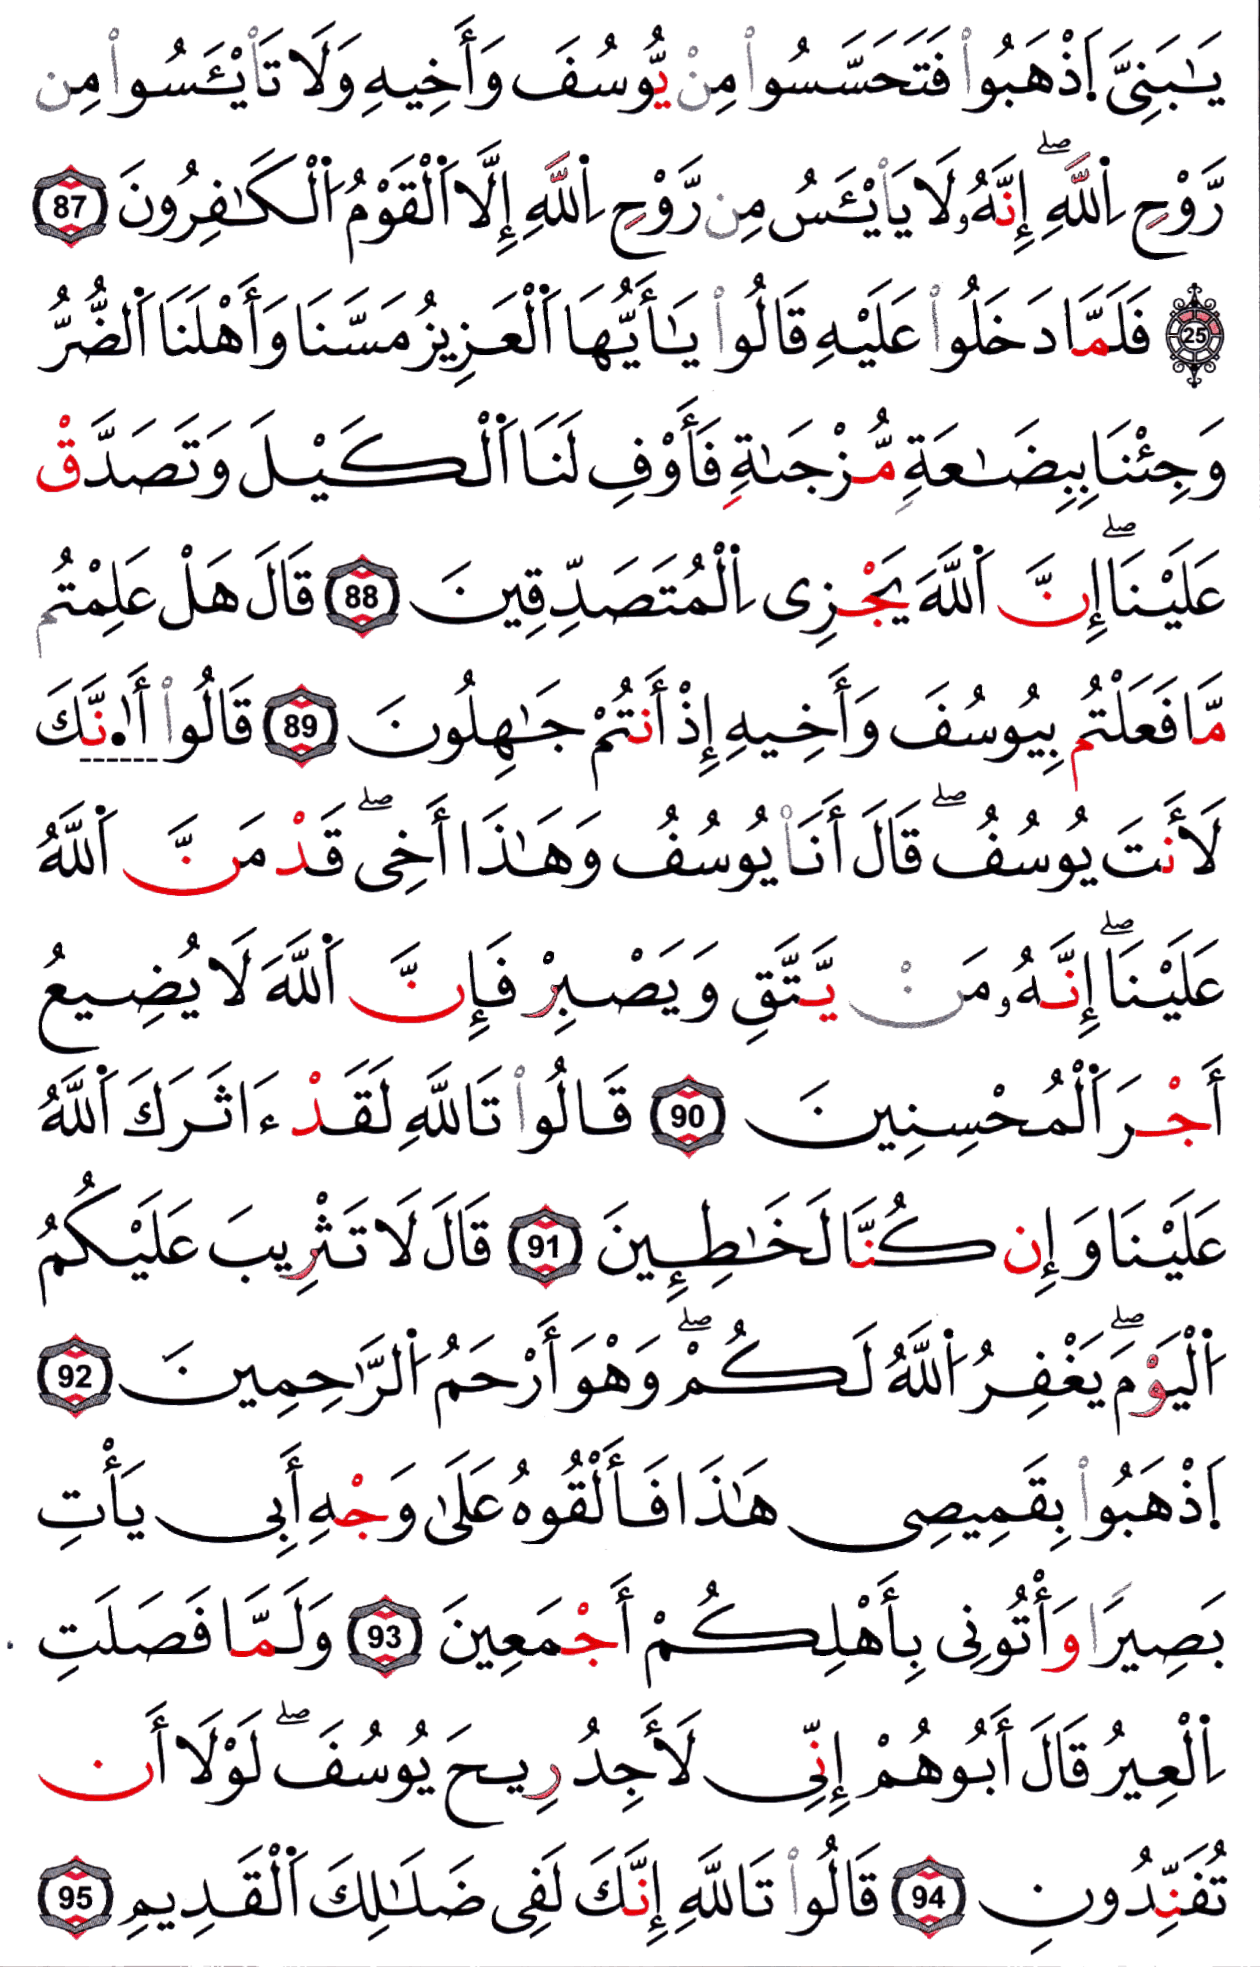 يَـٰبَنِىَّ اَ۪ذْهَبُواْ فَتَحَسَّسُواْ مِنْ يُّوسُفَ وَأَخِيهِ وَلَا تَاْيْـَٔسُواْ مِن
رَّوْحِ اِ۬للَّهِ ۖ إِنَّهُۥ لَا يَاْيْـَٔسُ مِن رَّوْحِ اِ۬للَّهِ إِلَّا اَ۬لْقَوْمُ اُ۬لْكَـٰفِرُونَ 87
25 فَلَمَّا دَخَلُواْ عَلَيْهِ قَالُواْ يَـٰأَيُّهَا اَ۬لْعَزِيزُ مَسَّنَا وَأَهْلَنَا اَ۬لضُّرُّ
وَجِئْنَا بِبِضَـٰعَةٍ مُّزْجَىٰةٍ فَأَوْفِ لَنَا اَ۬لْكَيْلَ وَتَصَدَّقْ
عَلَيْنَا ۖ إِنَّ اَ۬للَّهَ يَجْزِى اِ۬لْمُتَصَدِّقِينَ 88 قَالَ هَلْ عَلِمْتُم
مَّا فَعَلْتُم بِيُوسُفَ وَأَخِيهِ إِذْ أَنتُمْ جَـٰهِلُونَ 89 قَالُواْ أَا۬نَّكَ
لَأَنتَ يُوسُفُ ۖ قَالَ أَنَاْ يُوسُفُ وَهَـٰذَا أَخِى ۖ قَدْ مَنَّ اَ۬للَّهُ
عَلَيْنَا ۖ إِنَّهُۥ مَنْ يَّتَّقِ وَيَصْبِرْ فَإِنَّ اَ۬للَّهَ لَا يُضِيعُ
أَجْرَ اَ۬لْمُحْسِنِينَ 90 قَالُواْ تَاللَّهِ لَقَدْ ءَاثَرَكَ اَ۬للَّهُ
عَلَيْنَا وَإِن كُنَّا لَخَـٰطِـِٕينَ 91 قَالَ لَا تَثْرِيبَ عَلَيْكُمُ
اُ۬لْيَوْمَ ۖ يَغْفِرُ اُ۬للَّهُ لَكُمْ ۖ وَهْوَ أَرْحَمُ اُ۬لرَّٰحِمِينَ 92
اَ۪ذْهَبُواْ بِقَمِيصِى هَـٰذَا فَأَلْقُوهُ عَلَىٰ وَجْهِ أَبِى يَأْتِ
بَصِيرًا وَأْتُونِى بِأَهْلِكُمْ أَجْمَعِينَ 93 وَلَمَّا فَصَلَتِ
اِ۬لْعِيرُ قَالَ أَبُوهُمْ إِنِّى لَأَجِدُ رِيحَ يُوسُفَ ۖ لَوْلَا أَن
تُفَنِّدُونِ 94 قَالُواْ تَاللَّهِ إِنَّكَ لَفِى ضَلَـٰلِكَ اَ۬لْقَدِيمِ 95